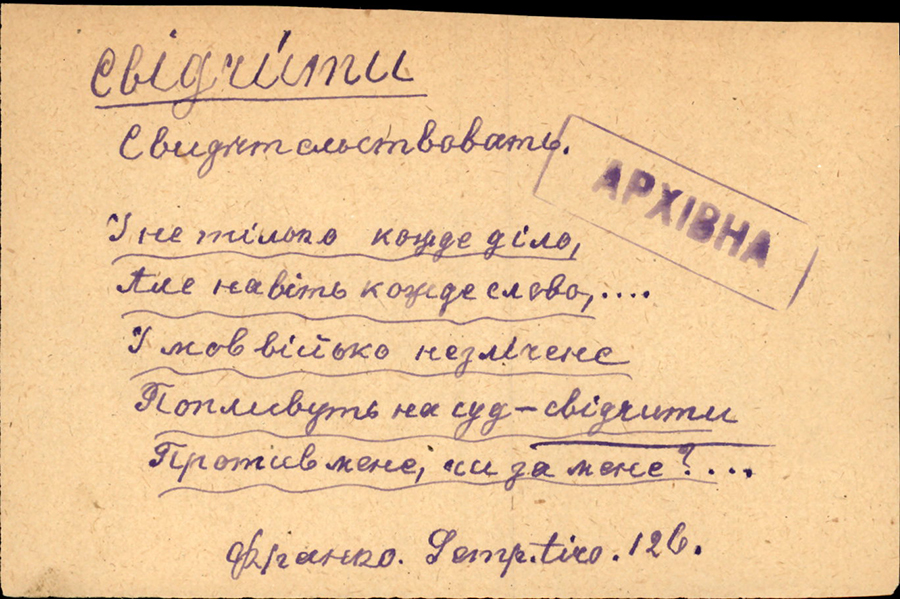 Свідчити
Свидѣтельствовать.
АРХІВНА
І не тілько кожде діло,
Але навіть кожде слово,....
І мов військо незлічене
Попливуть на суд – свідчити
Против мене, чи за мене?...
Франко. Semp. tiro. 126.